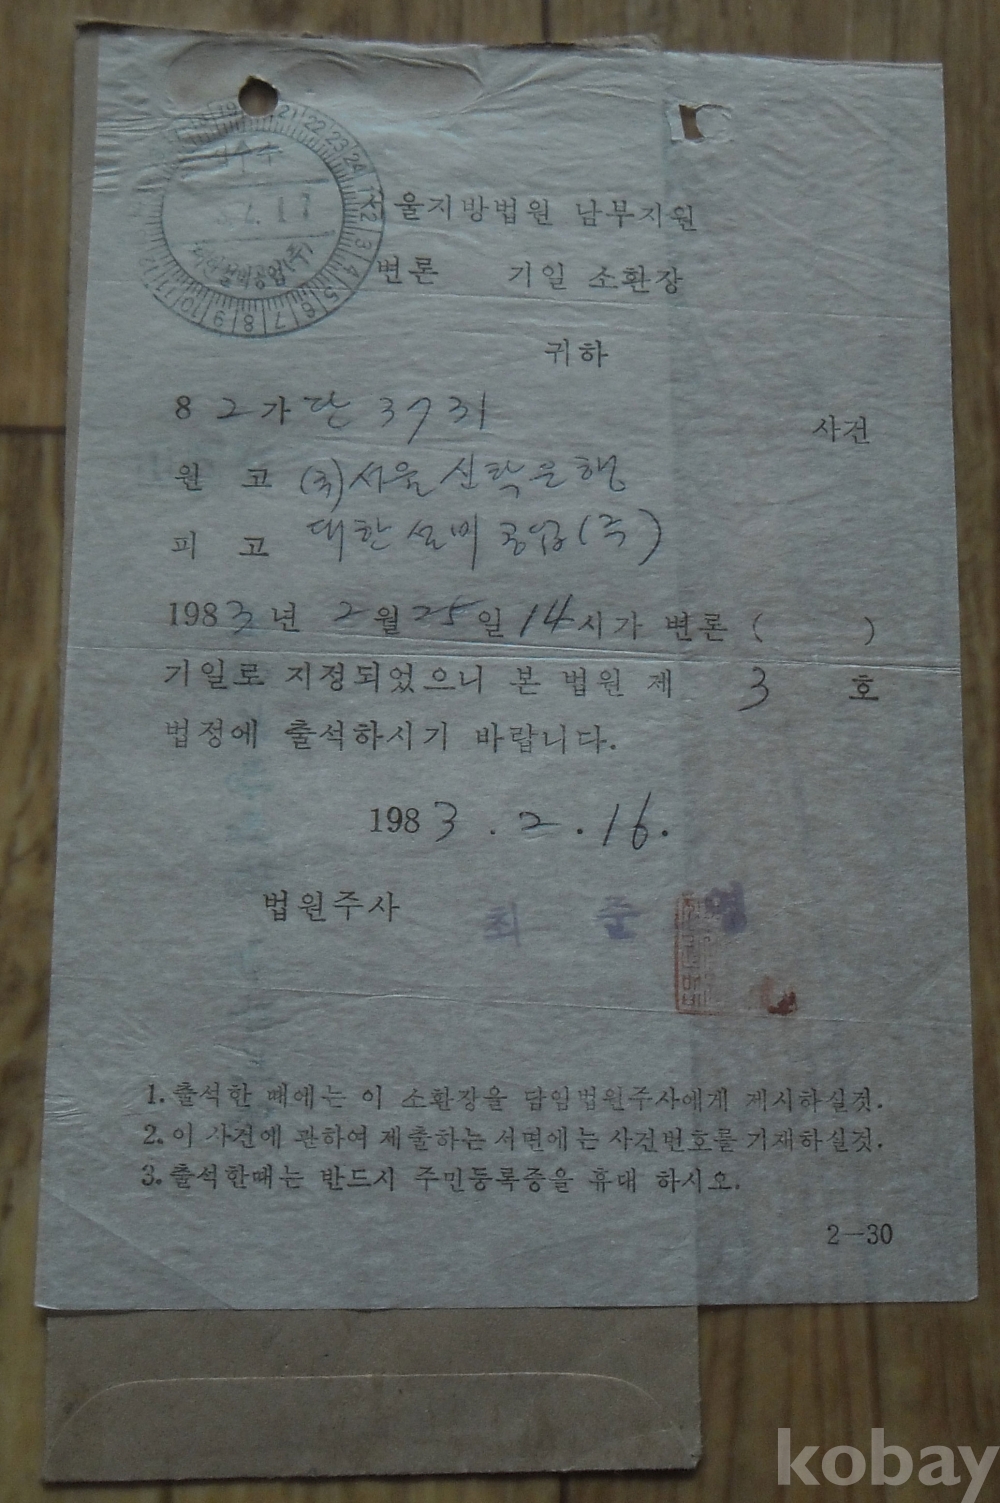 19 21 22 23 24
12 3 4 5 6 7 8 9 10 11 12
2.17
대한설비공업(주)
서울지방법원 남부지원
변론 기일 소환장
귀하
82가단 3731 사건
원 고 (주)서울신탁은행
피 고 대한설비공업(주)
1983년 2월25일14시가 변론 ( )
기일로 지정되었으니 본 법원 제 3 호
법정에 출석하시기 바랍니다.
1983.2.16.
법원주사 최 준 영
1. 출석한 때에는 이 소환장을 담임법원주사에게 제시하실것.
2. 이 사건에 관하여 제출하는 서면에는 사건번호를 기재하실것.
3. 출석한때는 반드시 주민등록증을 휴대 하시오.
2—30
kobay